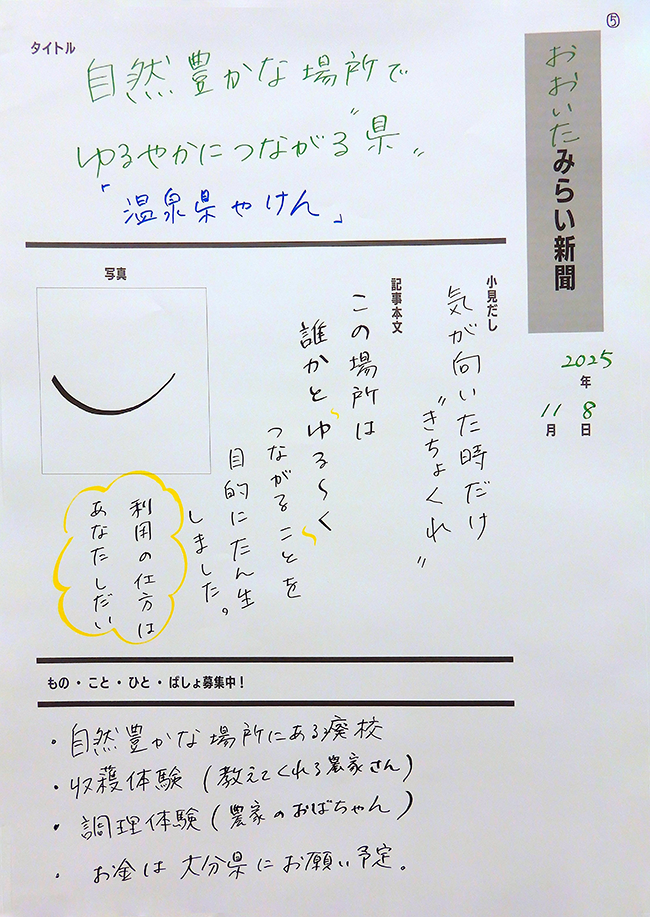 ⑤
タイトル
自然豊かな場所で
ゆるやかにつながる"県"
「温泉県やけん」
おおいたみらい新聞
2025
年
11 8
月 日
小見だし
気が向いた時だけ
"きちょくれ"
記事本文
この場所は
誰かとゆる〜く
つながることを
目的にたん生
しました。
写真
利用の仕方は
あなたしだい
もの・こと・ひと・ばしょ募集中！
・自然豊かな場所にある廃校
・収穫体験（教えてくれる農家さん）
・調理体験（農家のおばちゃん）
・お金は大分県にお願い予定。